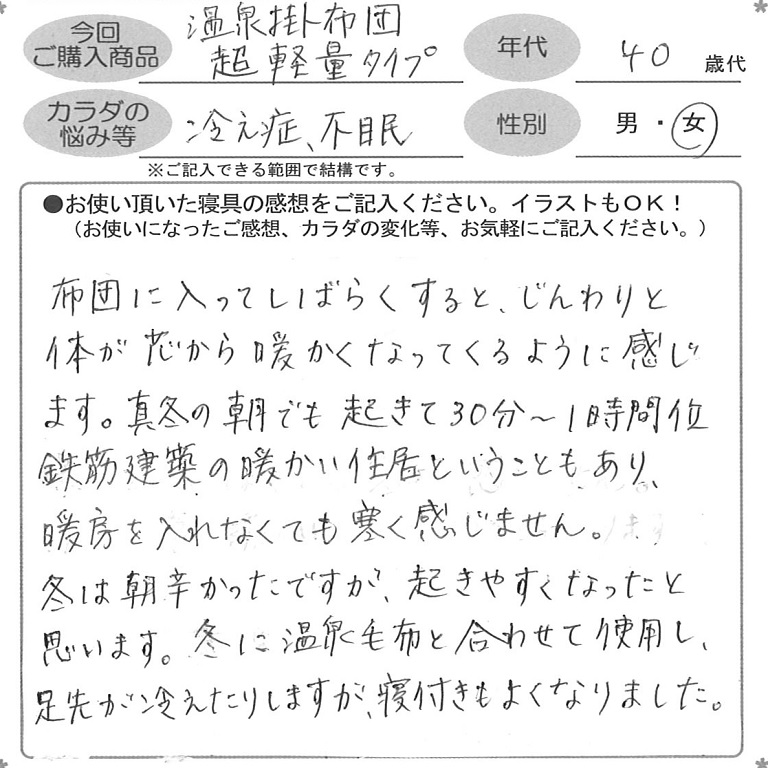 今回
ご購入商品
温泉掛ト布団
超軽量タイプ
年代
40 歳代
カラダの
悩み等
冷え症、不眠
性別
男・女
※ご記入できる範囲で結構です。
●お使い頂いた寝具の感想をご記入ください。イラストもOK！
（お使いになったご感想、カラダの変化等、お気軽にご記入ください。）
布団に入ってしばらくすると、じんわりと
体が芯から暖かくなってくるように感じ
ます。真冬の朝でも起きて30分～1時間位
鉄筋建築の暖かい住居ということもあり、
暖房を入れなくても寒く感じません。
冬は朝辛かったですが、起きやすくなったと
思います。冬に温泉毛布と合わせて使用し、
足先が冷えたりしますが、寝付きもよくなりました。